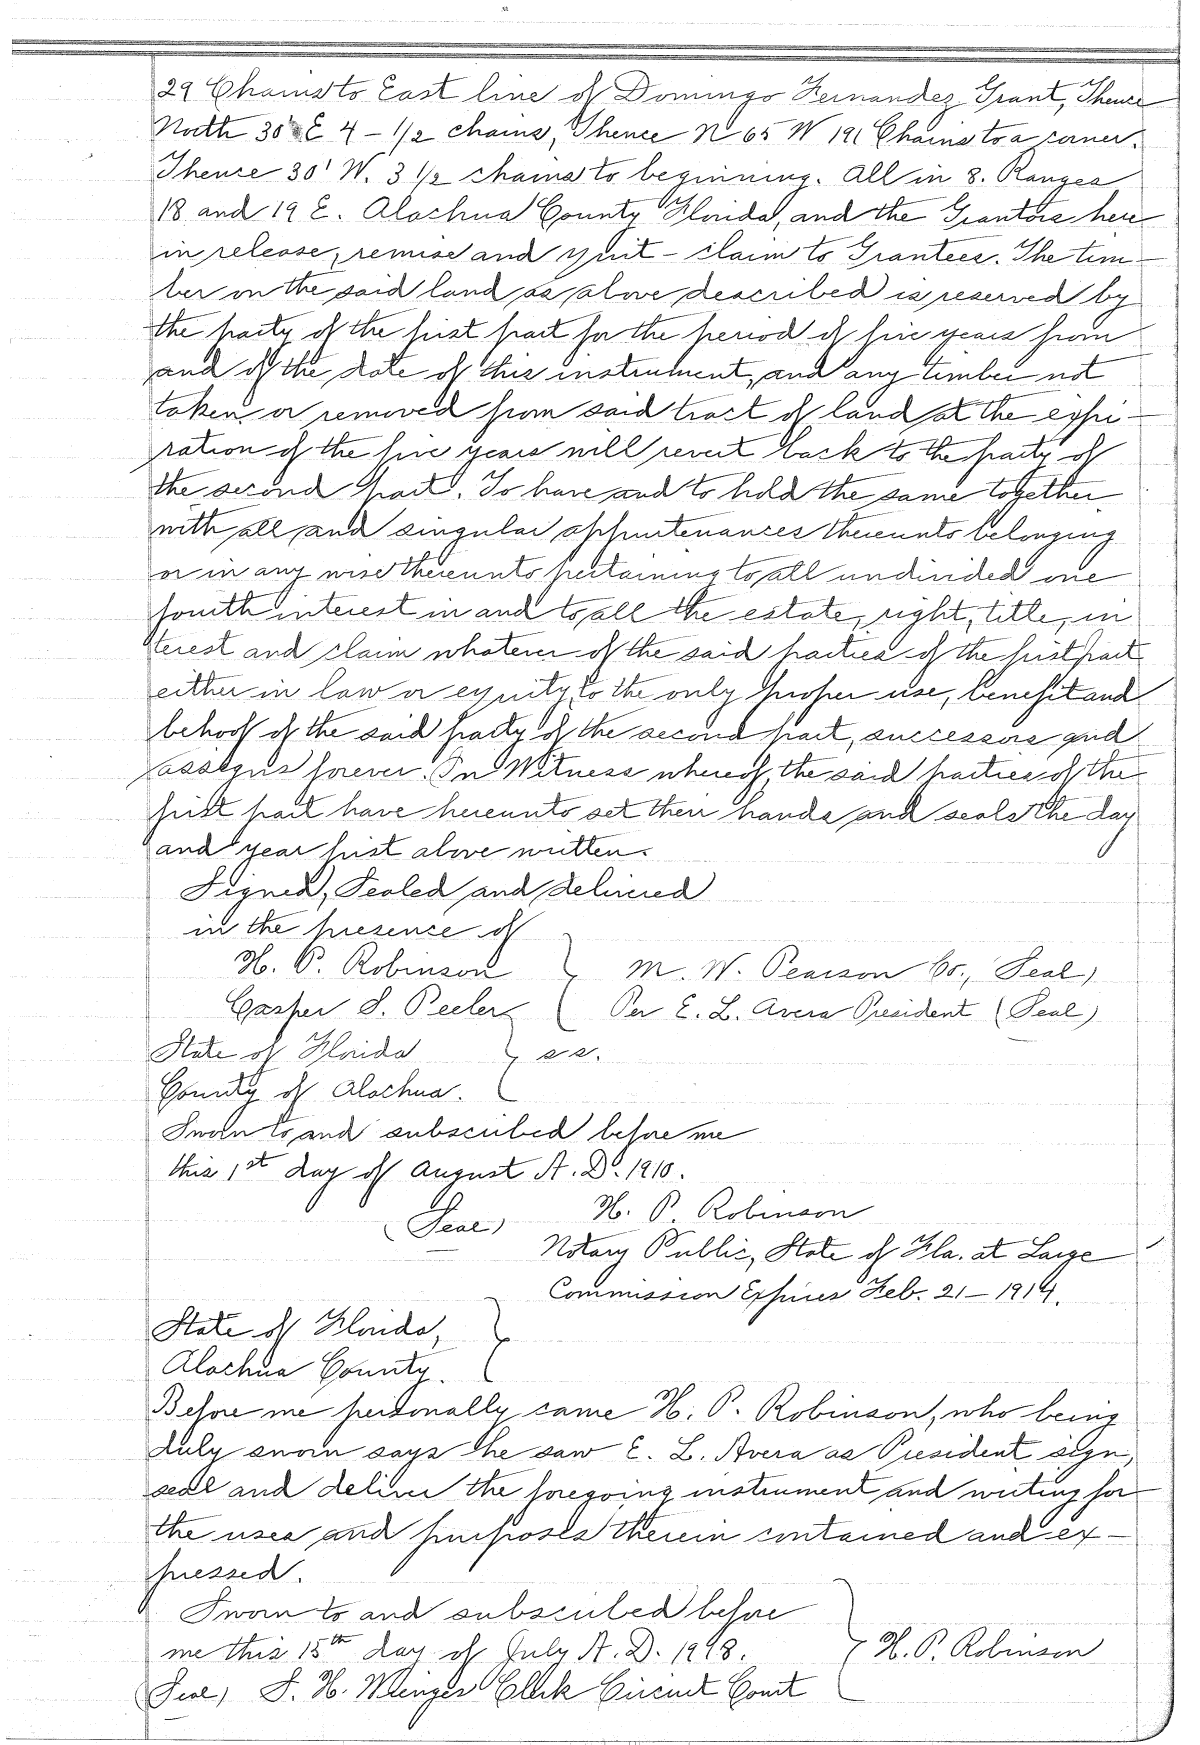 29 Chains to East line of Domingo Fernandez Grant, Thence
North 30' E 4 - 1/2 chains, Thence N 65 W 191 Chains to a corner.
Thence 30' W. 3 1/2 chains to beginning. All in 8. Ranges
18 and 19 E. Alachua County Florida, and the Grantors here
in release, remise and quit - claim to Grantees. The tim-
ber on the said land as above described is reserved by
the party of the first part for the period of five years from
and of the date of this instrument, and any timber not
taken or removed from said tract of land at the expi-
ration of the five years will revert back to the party of
the second part. To have and to hold the same together
with all and singular appurtenances thereunto belonging
or in any wise thereunto pertaining to all undivided one
fourth interest in and to all the estate, right, title, in
terest and claim whatever of the said parties of the first part
either in law or equity, to the only proper use, benefit and
behoof of the said party of the second part, successors and
assigns forever. In Witness whereof, the said parties of the
first part have hereunto set their hands and seals the day
and year first above written.
Signed, Sealed and delivered
in the presence of
H. P. Robinson } M. W. Pearson Co., Seal)
Casper S. Peeler Per E. L. Avera President (Seal)
State of Florida } ss.
County of Alachua.
Sworn to and subscribed before me
this 1st day of August A. D. 1910.
H. P. Robinson
(Seal)
Notary Public, State of Fla. at Large
Commission Expires Feb. 21 - 1914.
State of Florida, }
Alachua County.
Before me personally came H. P. Robinson, who being
duly sworn says he saw E. L. Avera as President sign,
seal and deliver the foregoing instrument and writing for
the uses and purposes therein contained and ex-
pressed.
Sworn to and subscribed before
me this 15th day of July A. D. 1918. } H. P. Robinson
(Seal) S. H. Wienges Clerk Circuit Court